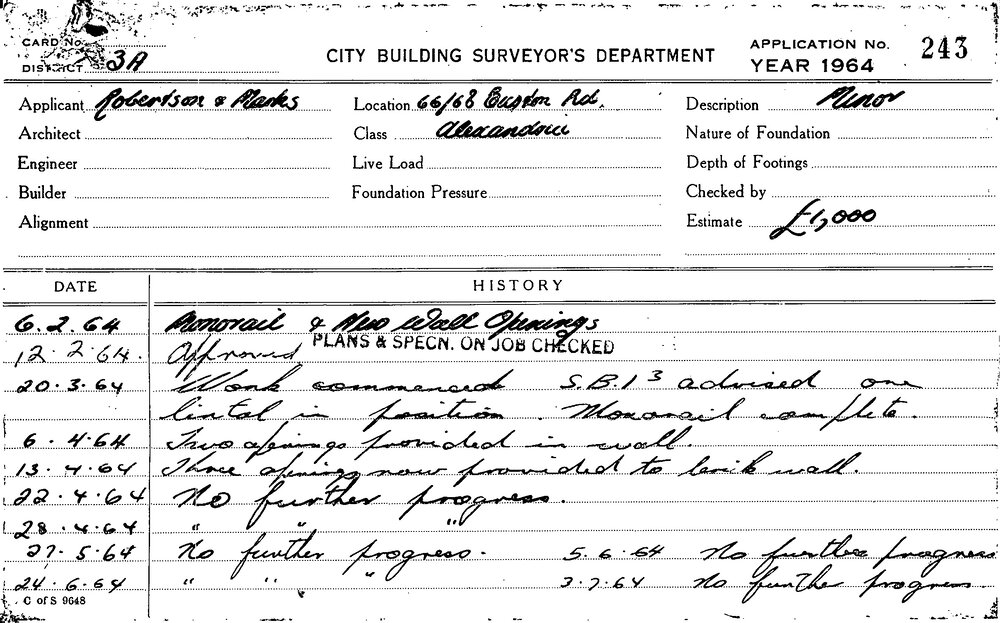 CARD No.
DISTRICT 3A
CITY BUILDING SURVEYOR'S DEPARTMENT
APPLICATION No. 243
YEAR 1964
Applicant Robertson & Marks
Location 66/68 Euston Rd.
Description Minor
Architect
Class Alexandria
Nature of Foundation
Engineer
Live Load
Depth of Footings
Builder
Foundation Pressure
Checked by
Alignment
Estimate £1,000
DATE HISTORY
6.2.64 Monorail & New Wall Openings
12.2.64. Approved PLANS & SPECN. ON JOB CHECKED
20.3.64 Work commenced S.B.I 3 advised one
lintal in position. Monorail complete.
6.4.64 Two openings provided in wall.
13.4.64 Three openings now provided to brick wall.
22.4.64 No further progress.
28.4.64 " " "
27.5.64 No further progress. 5.6.64 No further progress
24.6.64 " " " 3.7.64 No further progress.
C of S 9648